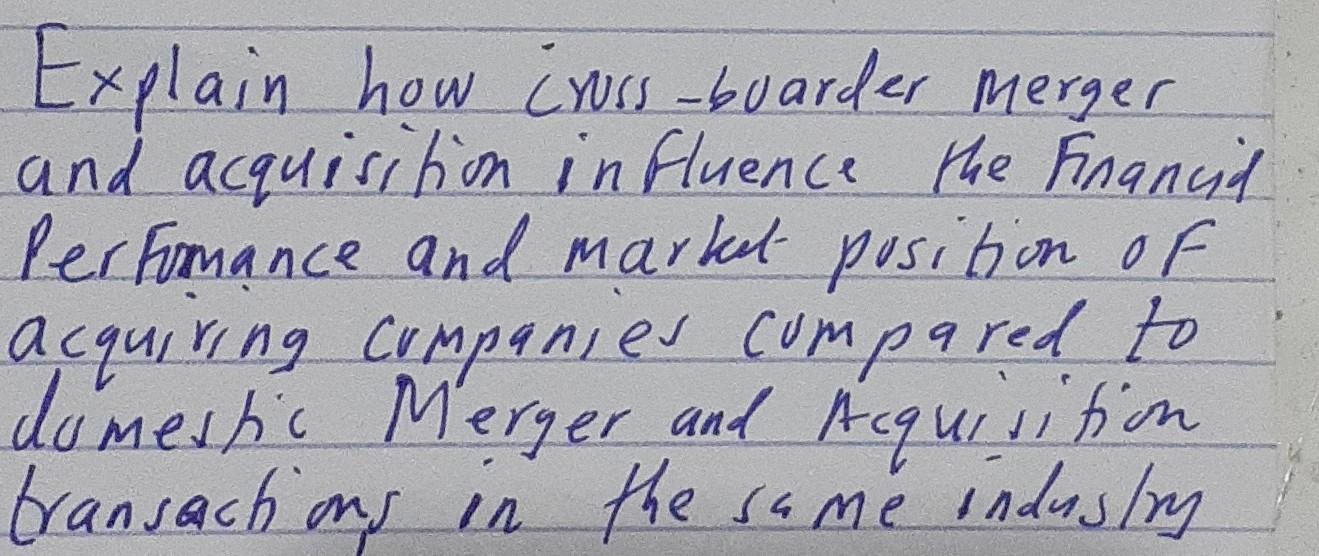 Explain how cross-boarder merger
and acquisition influence the Financial
Perfomance and market position of
acquiring companies compared to
domestic Merger and Acquisition
transactions in the same industry